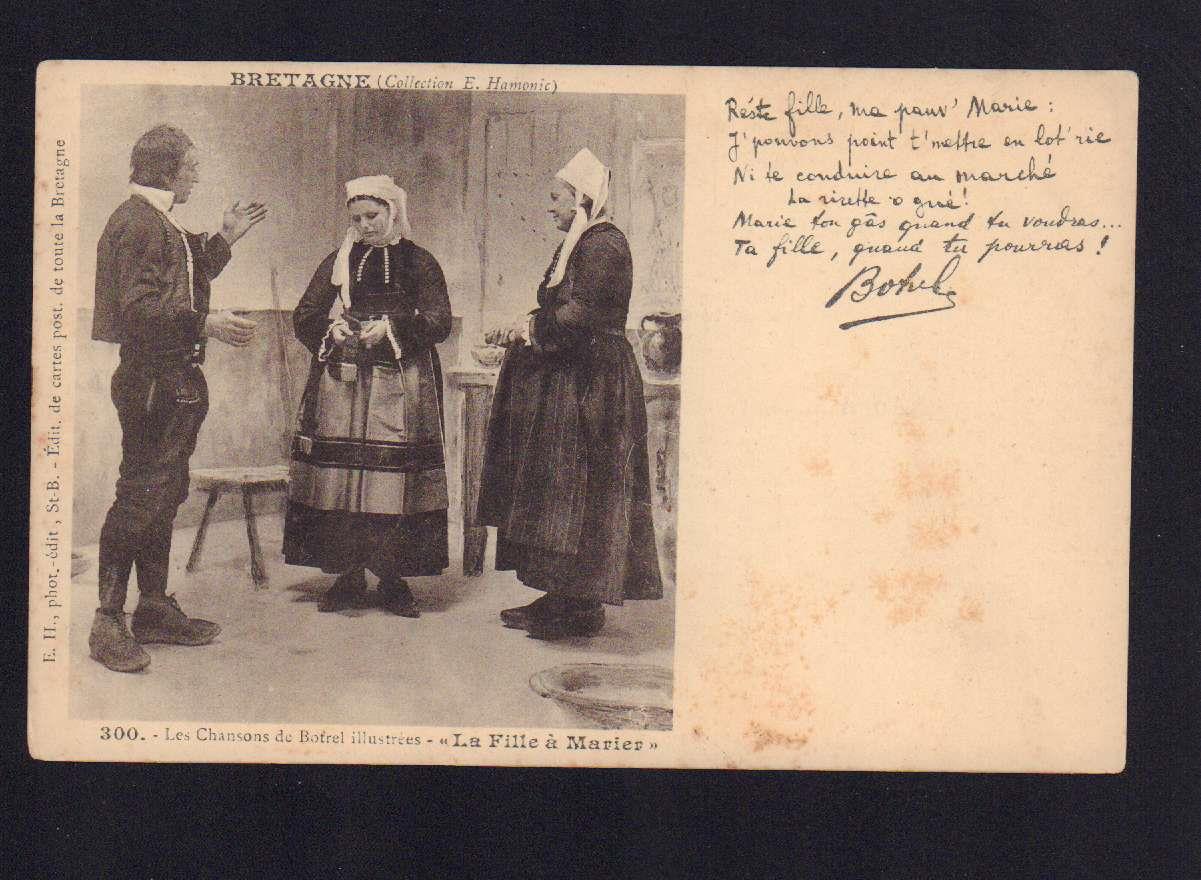 BRETAGNE (Collection E. Hamonic)
E. H., phot.-édit, St-B. - Édit. de cartes post. de toute la Bretagne
Réste fille, ma pauv' Marie :
J'pouvons point t'mettre en lot'rie
Ni te conduire au marché
La rirette o gué !
Marie ton gâs quand tu voudras...
Ta fille, quand tu pourras !
Botrel
300. - Les Chansons de Botrel illustrées - « La Fille à Marier »